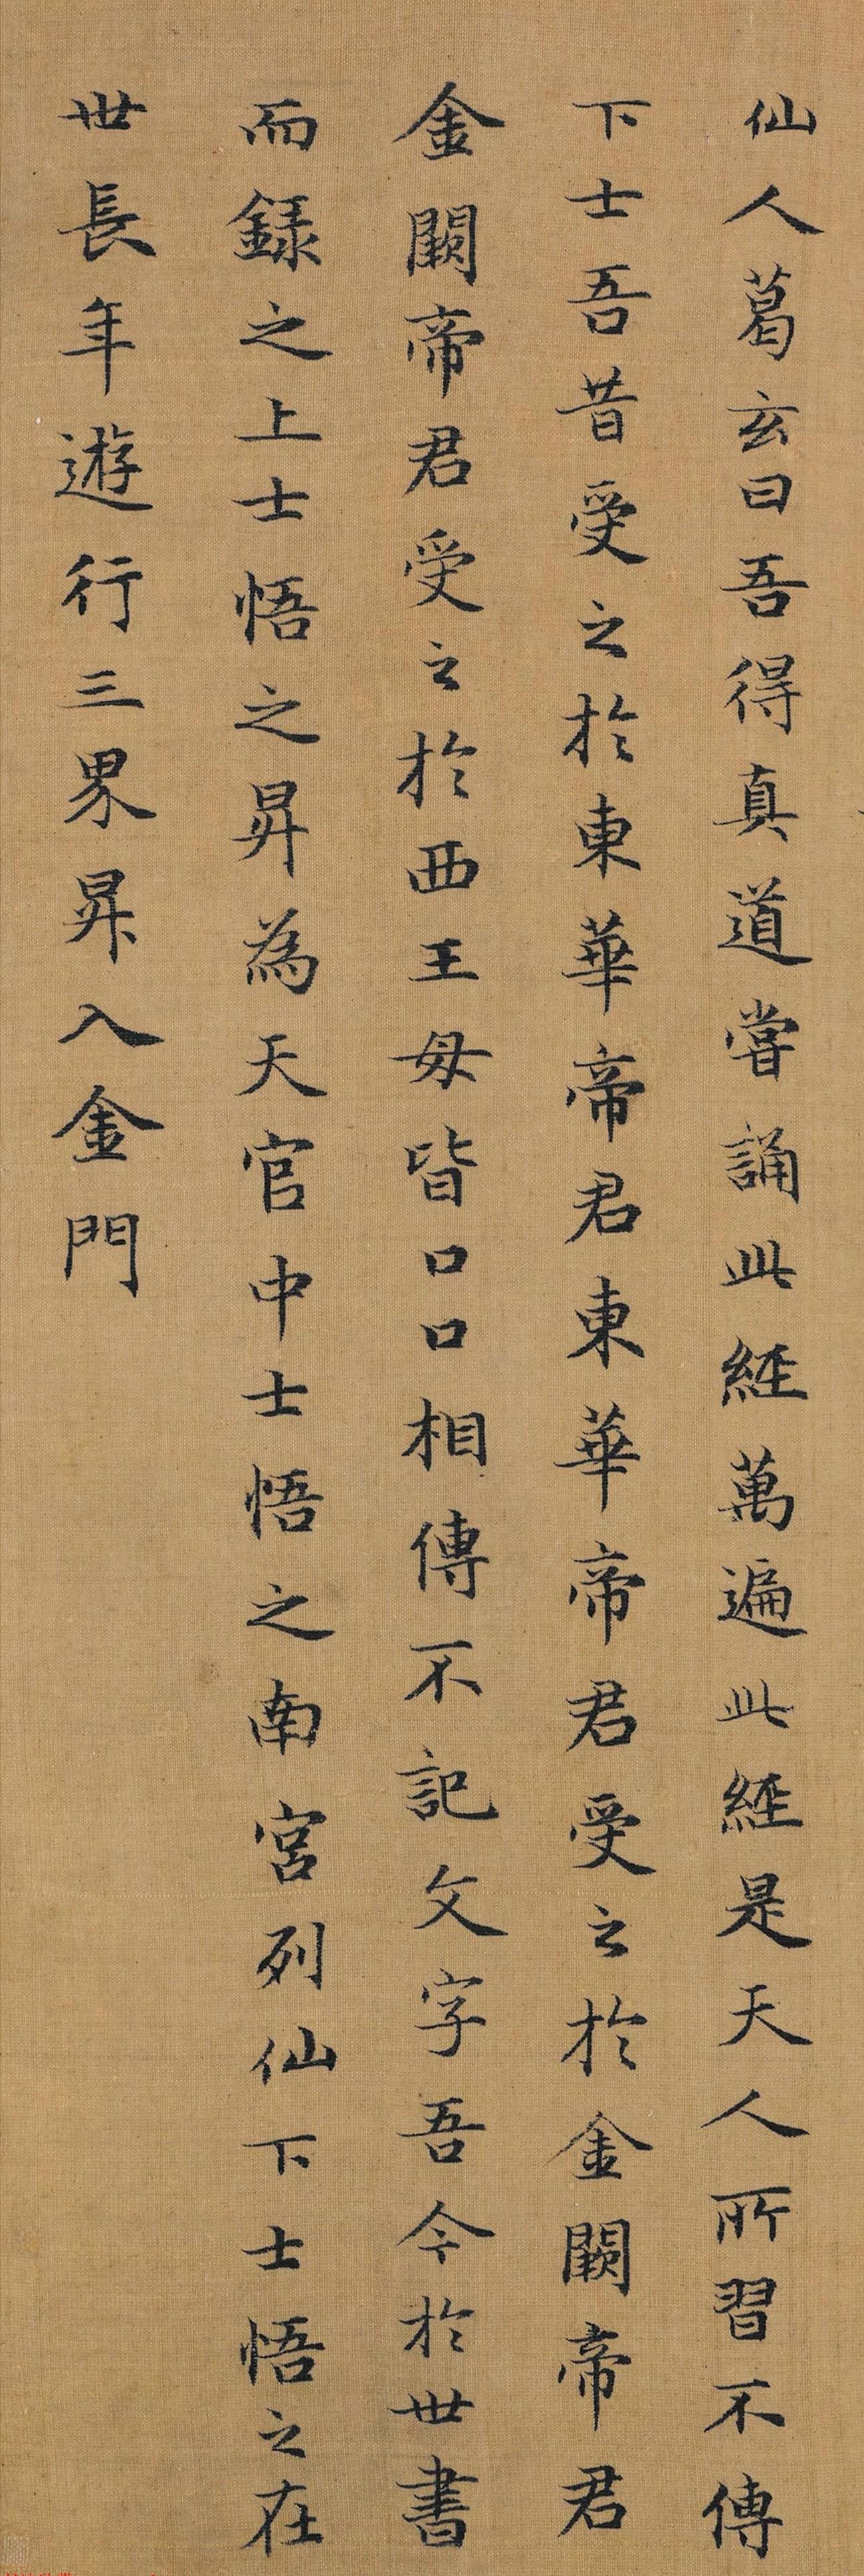 仙人葛玄曰吾得真道嘗誦此經萬遍此經是天人所習不傳
下士吾昔受之於東華帝君東華帝君受之於金闕帝君
金闕帝君受之於西王母皆口口相傳不記文字吾今於世書
而錄之上士悟之昇為天官中士悟之南宮列仙下士悟之在
世長年遊行三界昇入金門